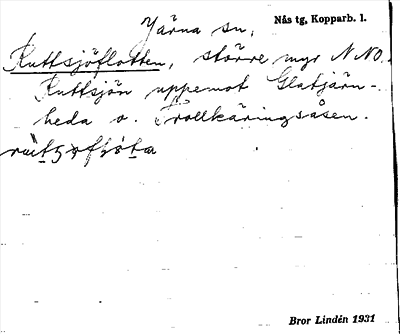 Järna sn, Nås tg, Kopparb. l.
Ruttsjöflotten, större myr N NO.
Ruttsjön uppemot Glatjärn-
heda o. Trollkäringsåsen.
Bror Lindén 1931